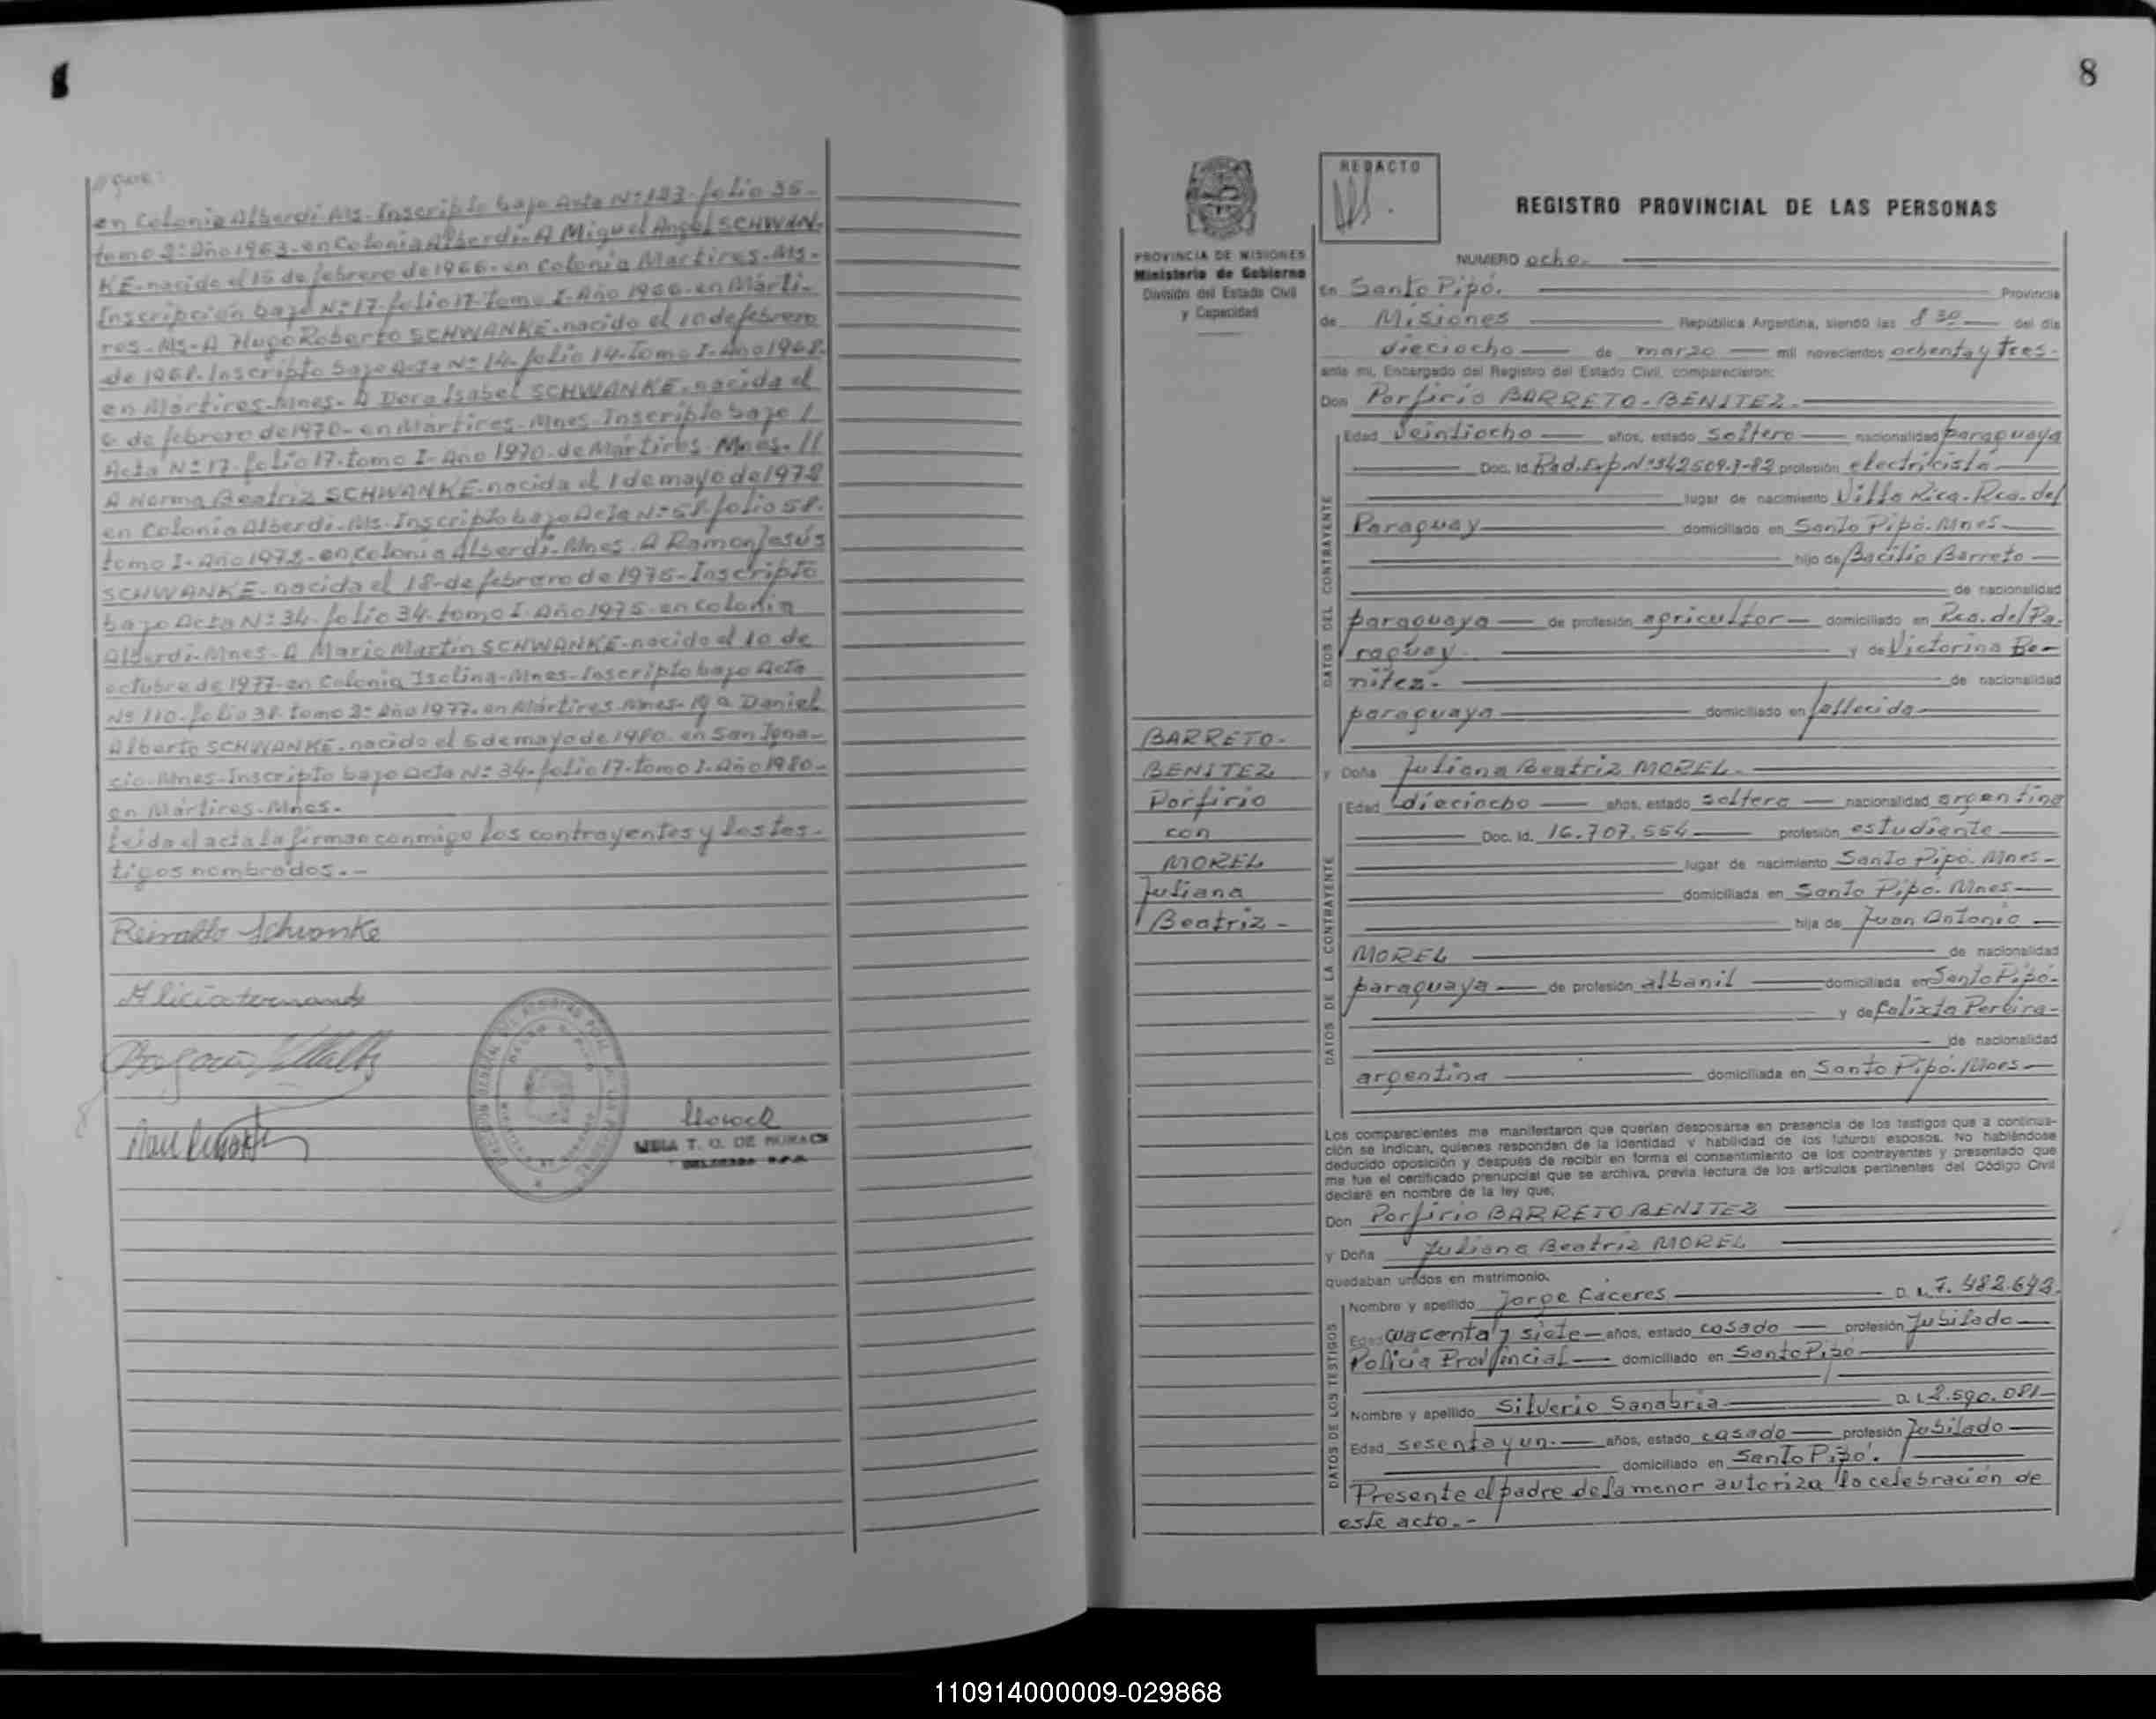 que:
en Colonia Alberdi. Ms. Inscripto bajo Acta Nº 123. folio 35-
tomo 2º Año 1963. en Colonia Alberdi. A Miguel Angel SCHWAN-
KE. nacido el 15 de febrero de 1966. en Colonia Martires. Ms-
Inscripción bajo Nº 17. folio 17. Tomo I. Año 1966. en Márti-
res. Ms. A Hugo Roberto SCHWANKE. nacido el 10 de febrero
de 1968. Inscripto bajo Acta Nº 14. folio 14. Tomo I. Año 1968.
en Mártires. Mnes. A Dora Isabel SCHWANKE. nacida el
6 de febrero de 1970. en Mártires. Mnes. Inscripto bajo
Acta Nº 17. folio 17. tomo I- Año 1970. de Mártires. Mnes. //
A Norma Beatriz SCHWANKE. nacida el 1 de mayo de 1972
en Colonia Alberdi. Ms. Inscripto bajo Acta Nº 58. folio 58.
tomo I- Año 1972. en Colonia Alberdi. Mnes. A Ramon Jesús
SCHWANKE. nacida el 18 de febrero de 1975- Inscripto
bajo Acta Nº 34. folio 34. tomo I. Año 1975. en Colonia
Alberdi. Mnes. A Mario Martin SCHWANKE. nacido el 10 de
octubre de 1977. en Colonia Isolina. Mnes- Inscripto bajo Acta
Nº 110. folio 38. tomo 2º Año 1977. en Mártires Mnes. a Daniel
Alberto SCHWANKE. nacido el 5 de mayo de 1980. en San Igna-
cio. Mnes- Inscripto bajo Acta Nº 34. folio 17. tomo I. Año 1980-
en Mártires. Mnes.
Leida el acta la firman conmigo los contrayentes y los tes-
tigos nombrados.-
Reinaldo Schwanke
8
REDACTO
REGISTRO PROVINCIAL DE LAS PERSONAS
PROVINCIA DE MISIONES
Ministerio de Gobierno
División del Estado Civil
y Capacidad
NUMERO ocho.
en Santo Pipó. Provincia
de Misiones República Argentina, siendo las 8 30 del día
dieciocho de marzo mil novecientos ochenta y tres-
ante mí, Encargado del Registro del Estado Civil, comparecieron:
Don Porfirio BARRETO-BENITEZ-
DATOS DEL CONTRAYENTE
Edad Veintiocho años, estado soltero nacionalidad paraguaya
Doc. Id. Rad. Exp. Nº 342509.7-82 profesión electricista
lugar de nacimiento Villa Rica. Rca. del
Paraguay domiciliado en Santo Pipó. Mnes-
hijo de Bacilio Barreto
de nacionalidad
paraguaya de profesión agricultor domiciliado en Rca. del Pa-
raguay. y de Victorina Be-
nítez- de nacionalidad
paraguaya domiciliado en fallecida
BARRETO-
BENITEZ
Porfirio
con
MOREL
Juliana
Beatriz-
y Doña Juliana Beatriz MOREL-
DATOS DE LA CONTRAYENTE
Edad dieciocho años, estado soltera nacionalidad argentina
Doc. Id. 16.707.554 profesión estudiante
lugar de nacimiento Santo Pipó. Mnes-
domiciliada en Santo Pipó. Mnes-
hija de Juan Antonio
MOREL de nacionalidad
paraguaya de profesión albanil domiciliada en Santo Pipó-
y de Calixta Pereira-
de nacionalidad
argentina domiciliada en Santo Pipó. Mnes-
Los comparecientes me manifestaron que querían desposarse en presencia de los testigos que a continua-
ción se indican, quienes responden de la identidad y habilidad de los futuros esposos. No habiéndose
deducido oposición y después de recibir en forma el consentimiento de los contrayentes y presentado que
me fue el certificado prenupcial que se archiva, previa lectura de los artículos pertinentes del Código Civil
declaré en nombre de la ley que:
Don Porfirio BARRETO BENITEZ
y Doña Juliana Beatriz MOREL
quedaban unidos en matrimonio.
DATOS DE LOS TESTIGOS
Nombre y apellido Jorge Caceres D. I. 7.482.643.
Edad cuacenta y siete años, estado casado profesión Jubilado
Policia Provincial domiciliado en Santo Pipó
Nombre y apellido Silverio Sanabria D. I. 2.590.081
Edad sesenta y un. años, estado casado profesión Jubilado
domiciliado en Santo Pipó.
Presente el padre de la menor autoriza la celebración de
este acto.-
110914000009-029868